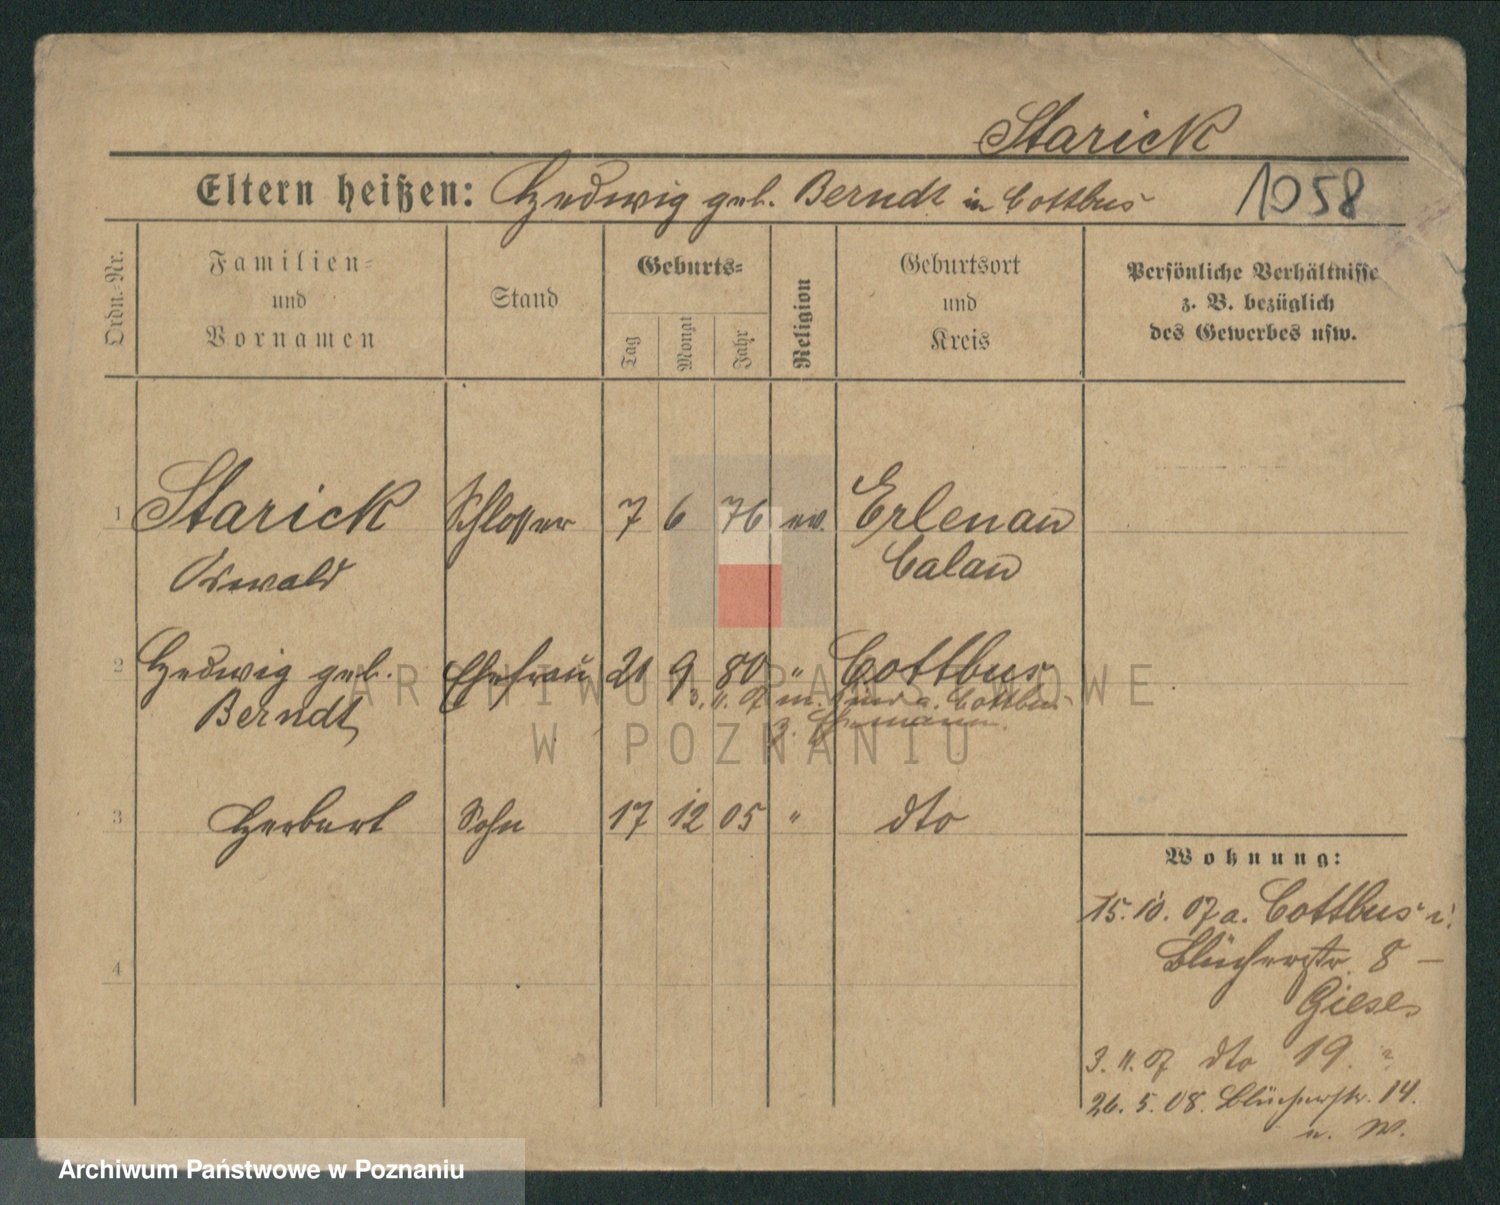 Starick
Eltern heißen: Hedwig geb. Berndt in Cottbus
1058
Ordn.-Nr.
Familien-
und
Vornamen
Stand
Geburts-
Tag
Monat
Jahr
Religion
Geburtsort
und
Kreis
Persönliche Verhältnisse
z. B. bezüglich
des Gewerbes usw.
1 Starick Schlosser 7 6 76 ev. Erlenau
Oswald Calau
2 Hedwig geb. Ehefrau 21 9 80 " Cottbus
Berndt 3.11.07 m. Kind a. Cottbus
z. Ehemann.
3 Herbert Sohn 17 12 05 " dto
4
Wohnung:
15.10.07 a. Cottbus i.
Blücherstr. 8 –
Giese.
3.11.07 dto 19.
26.5.08. Blücherstr. 14.
n. W.
ARCHIWUM PAŃSTWOWE
W POZNANIU
Archiwum Państwowe w Poznaniu